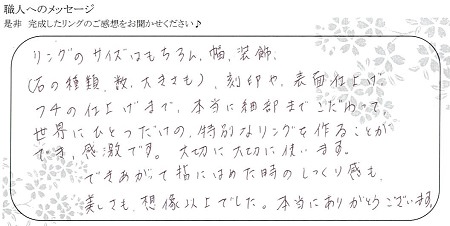 職人へのメッセージ
是非 完成したリングのご感想をお聞かせください♪
リングのサイズはもちろん、幅、装飾、
(石の種類、数、大きさも)、刻印や、表面仕上げ、
フチの仕上げまで、本当に細部までこだわって、
世界にひとつだけの、特別なリングを作ることが
でき、感激です。大切に大切に使います。
できあがって指にはめた時のしっくり感も、
美しさも、想像以上でした。本当にありがとうございます。